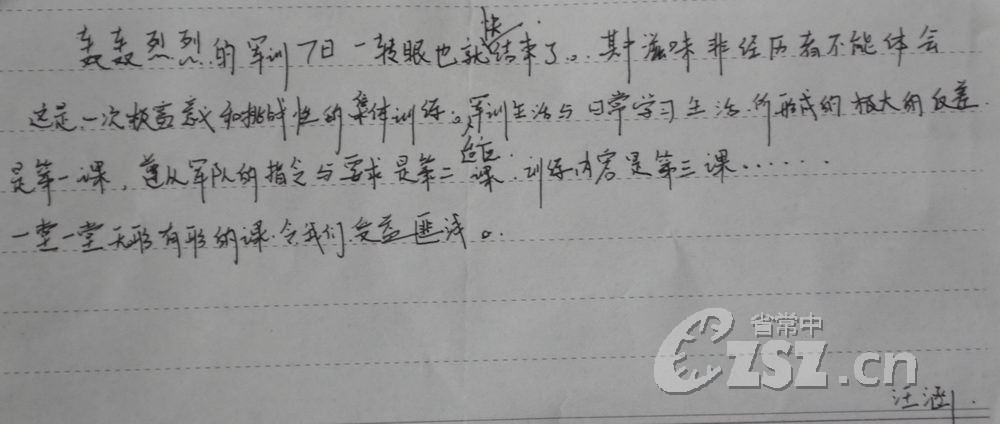 轰轰烈烈的军训7日一转眼也就快结束了。其中滋味非经历者不能体会
这是一次极富意义和挑战性的集体训练。军训生活与日常学习生活所形成的极大的反差
是第一课，遵从军队的指令与要求是第二课.训练内容是第三课……
一堂一堂无形有形的课.令我们受益匪浅。
省常中
CZSZ.cn
汪涵